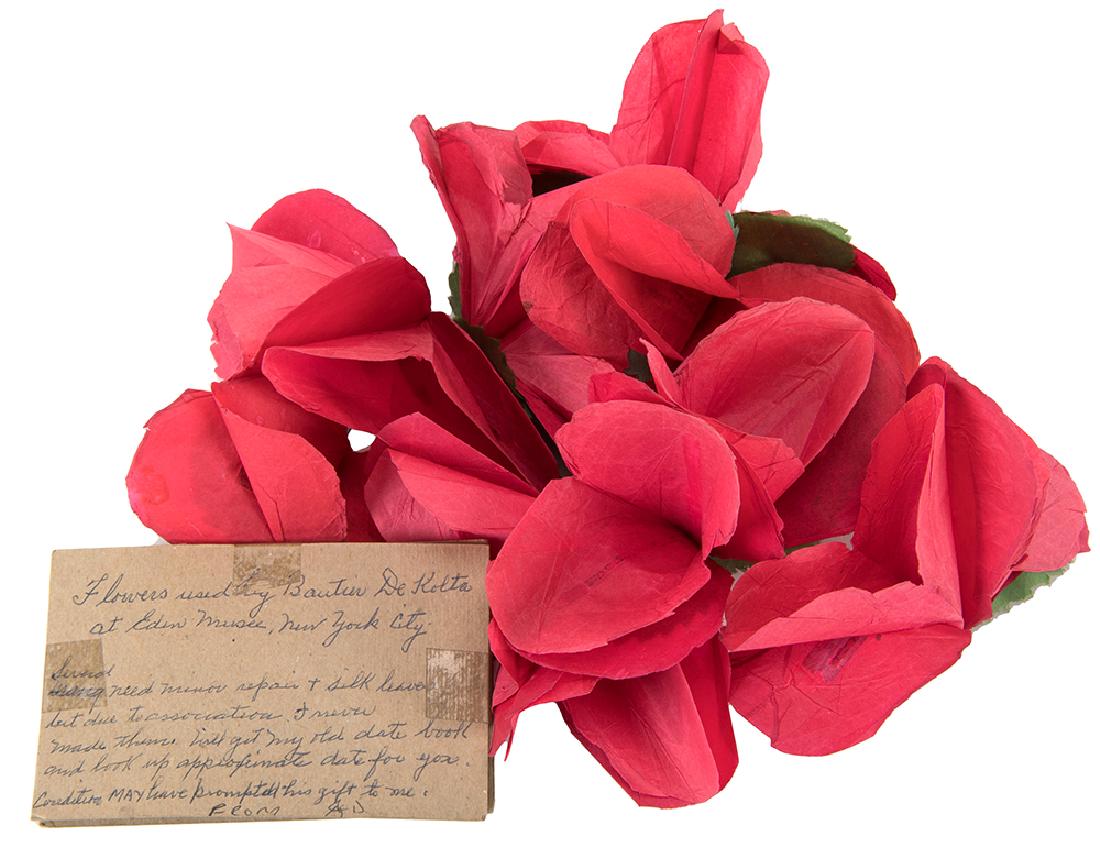 Flowers used by Bautier De Kolta
at Eden Musee, New York City
Several
need minor repair + silk leaves
but due to association I never
made them. Will get my old date book
and look up approximate date for you.
Condition MAY have prompted his gift to me.
FROM